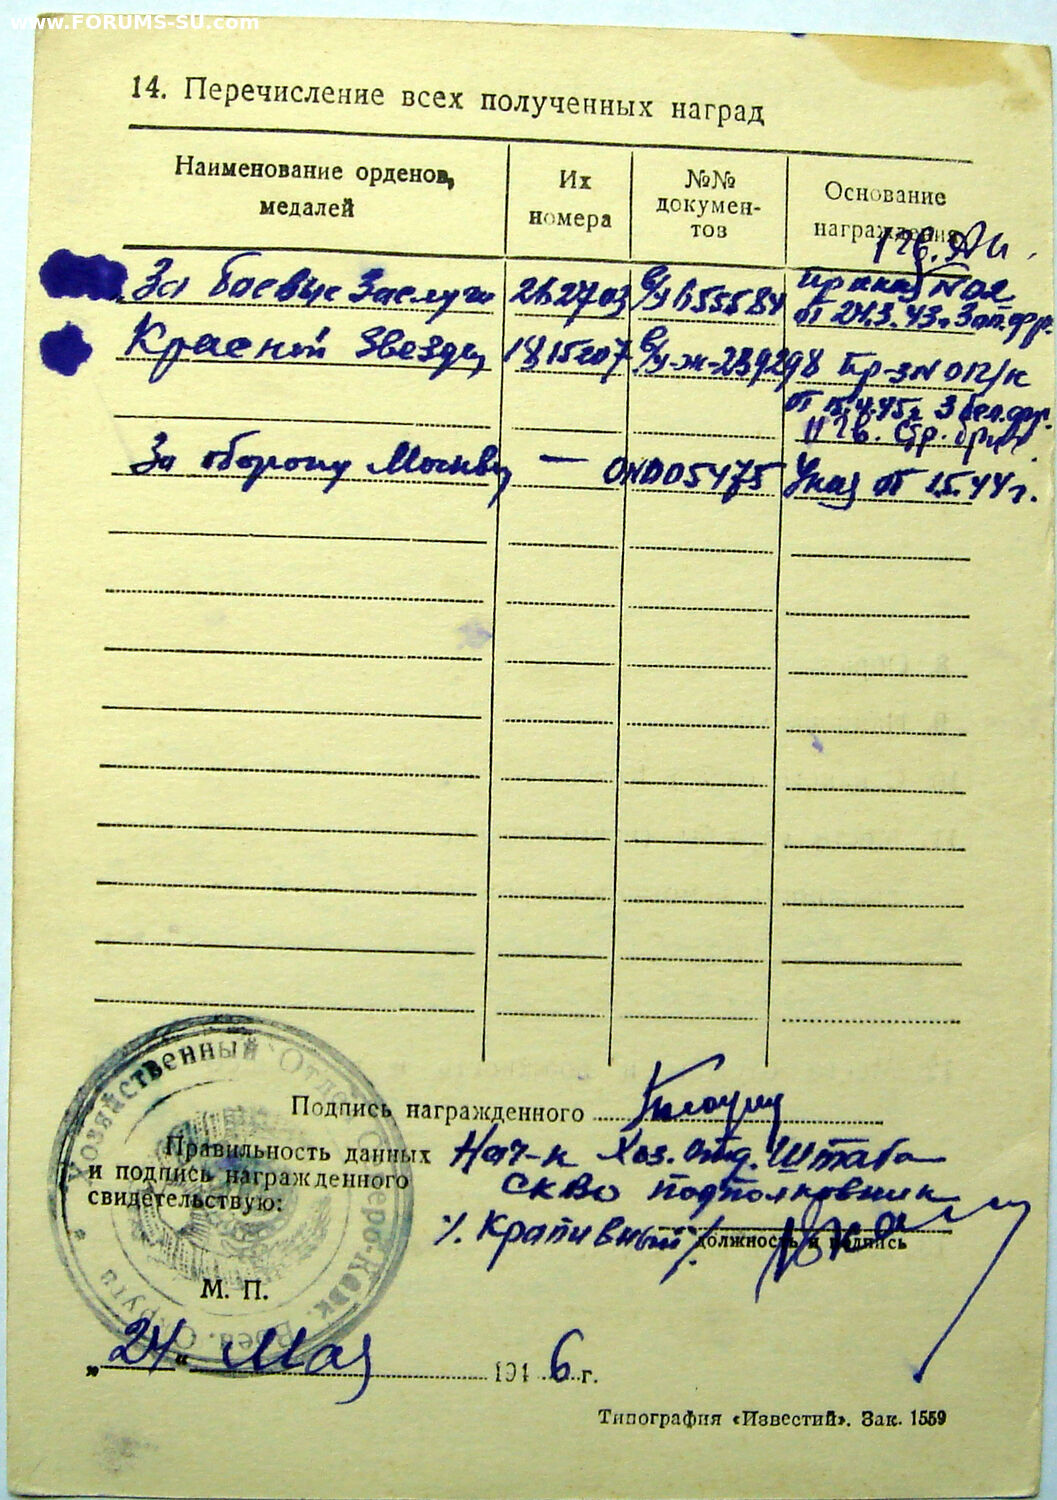 www.FORUMS-SU.com
14. Перечисление всех полученных наград
Наименование орденов, медалей
Их номера
№№ докумен-тов
Основание награждения
За боевые Заслуги
262703
555584
от 24.3.43г. Зап.фр.
Красной Звезды
1815207
239298
от 15.4.45г. 3 бел.фр.
11 Гв.
За оборону Москвы
—
005475
Указ от 1.5.44г.
Подпись награжденного
Правильность данных
и подпись награжденного
свидетельствую:
Нач-к Хоз. отд. Штаба
СКВО подполковник
/. Крапивный /.
должность и подпись
М. П.
Хозяйственный Отдел Северо-Кавк. Воен. Округа
„ 24 " Мая 1946 г.
Типография «Известий». Зак. 1559